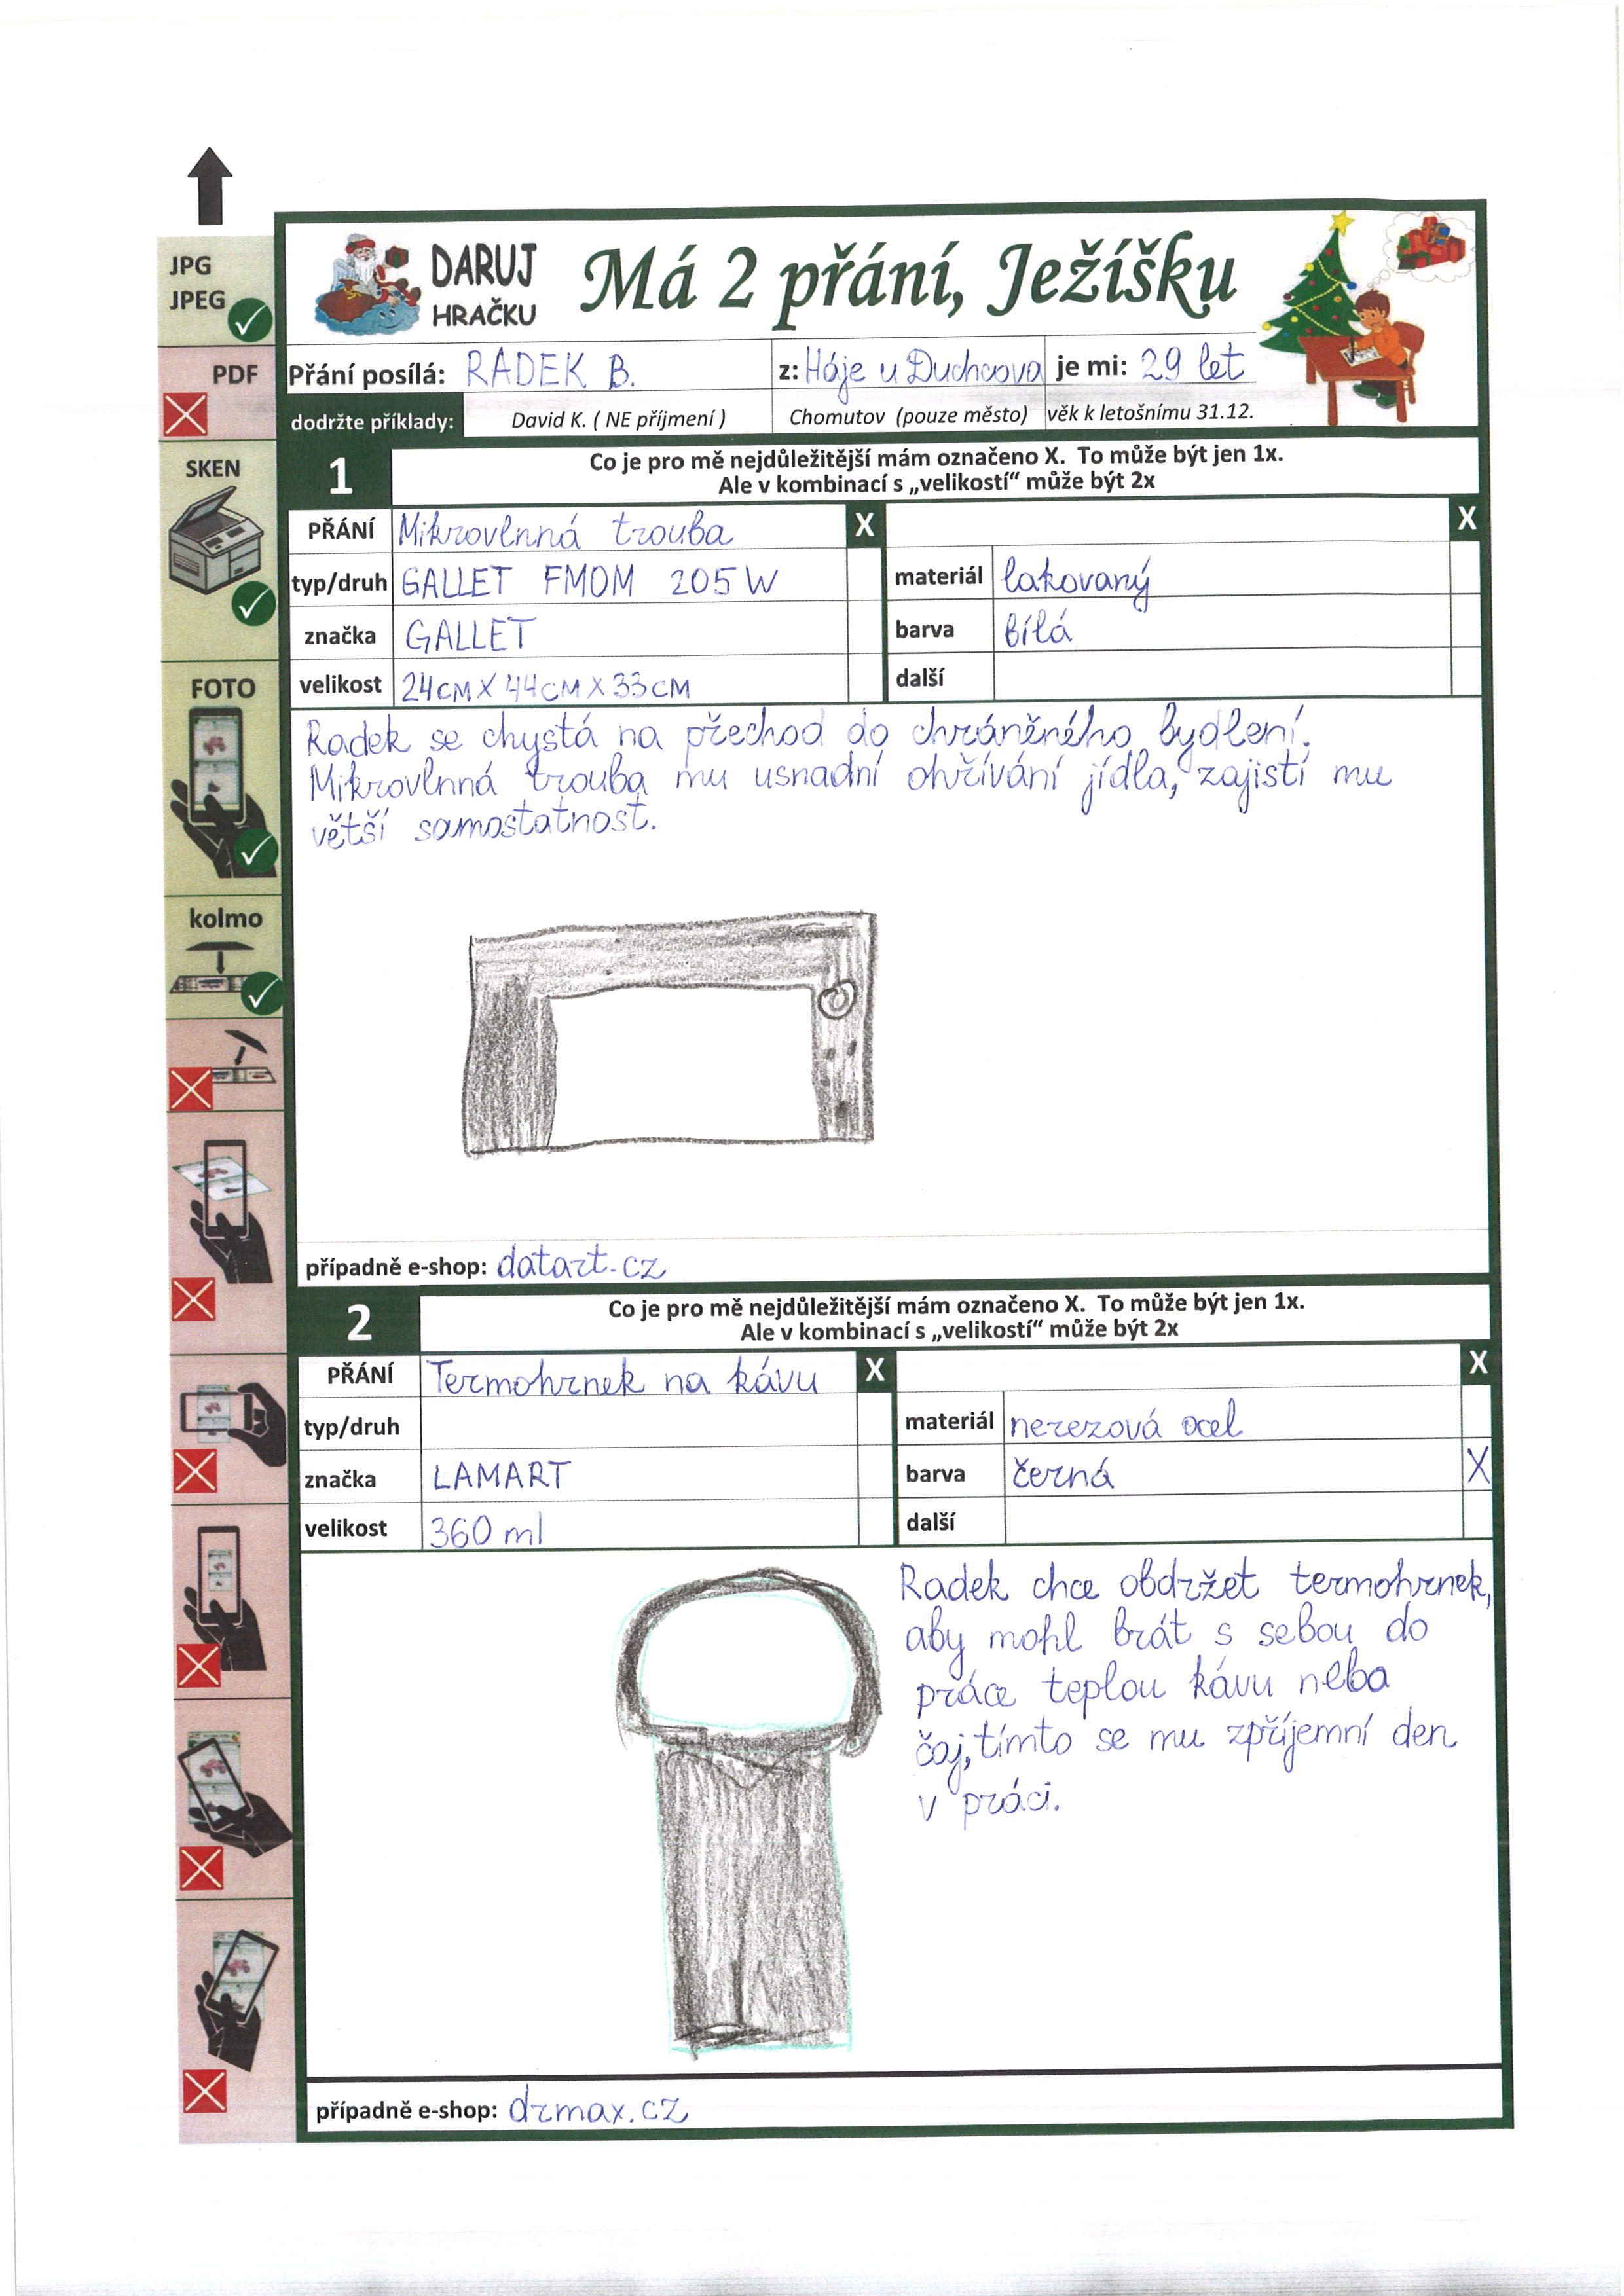 JPG
JPEG
PDF
SKEN
FOTO
kolmo
DARUJ
HRAČKU
Má 2 přání, Ježíšku
Přání posílá: RADEK B. z: Háje u Duchcova je mi: 29 let
dodržte příklady: David K. ( NE příjmení ) Chomutov (pouze město) věk k letošnímu 31.12.
1
Co je pro mě nejdůležitější mám označeno X. To může být jen 1x.
Ale v kombinací s „velikostí“ může být 2x
PŘÁNÍ Mikrovlnná trouba X X
typ/druh GALLET FMOM 205 W materiál lakovaný
značka GALLET barva bílá
velikost 24CM X 44CM X 33CM další
Radek se chystá na přechod do chráněného bydlení.
Mikrovlnná trouba mu usnadní ohřívání jídla, zajistí mu
větší samostatnost.
případně e-shop: datart.cz
2
Co je pro mě nejdůležitější mám označeno X. To může být jen 1x.
Ale v kombinací s „velikostí“ může být 2x
PŘÁNÍ Termohrnek na kávu X X
typ/druh materiál nerezová ocel
značka LAMART barva černá X
velikost 360 ml další
Radek chce obdržet termohrnek,
aby mohl brát s sebou do
práce teplou kávu neba
čaj, tímto se mu zpříjemní den
v práci.
případně e-shop: drmax.cz